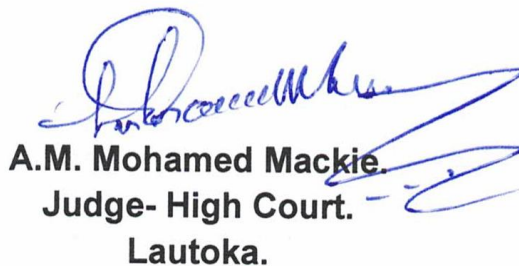 A.M. Mohamed Mackie.
Judge- High Court.
Lautoka.